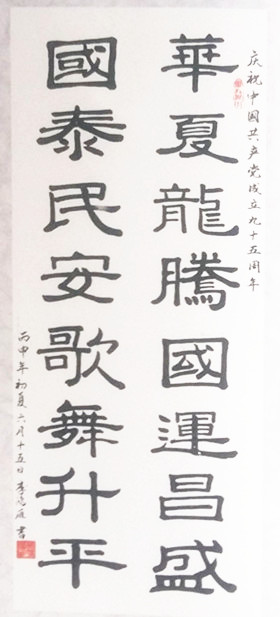 庆祝中国共产党成立九十五周年
華夏龍騰國運昌盛
國泰民安歌舞升平
丙申年初夏六月十五日李
書